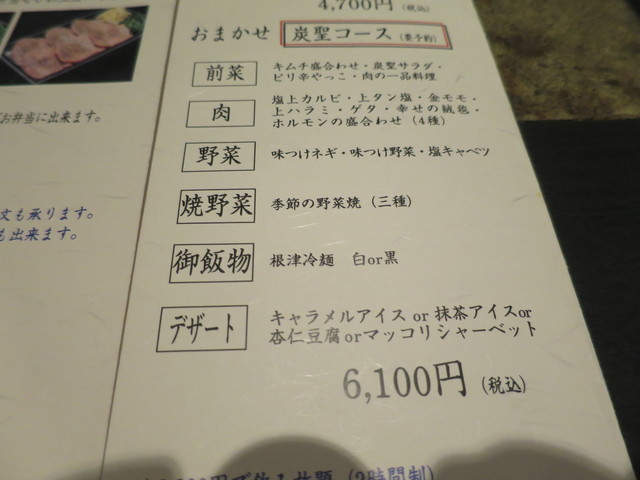 4,700円(税込)
おまかせ 炭聖コース(要予約)
前菜
キムチ盛合わせ・炭聖サラダ・
ピリ辛やっこ・肉の一品料理
肉
塩上カルビ・上タン塩・金モモ・
上ハラミ・ゲタ・幸せの絨毯・
ホルモンの盛合わせ(4種)
野菜
味つけネギ・味つけ野菜・塩キャベツ
焼野菜
季節の野菜焼(三種)
御飯物
根津冷麺 白or黒
デザート
キャラメルアイス or 抹茶アイスor
杏仁豆腐orマッコリシャーベット
6,100円(税込)
お弁当に出来ます。
文も承ります。
も出来ます。
円で飲み放題(2時間制)